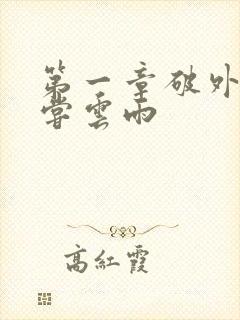 第一章破外
嘗雲雨
高紅霞